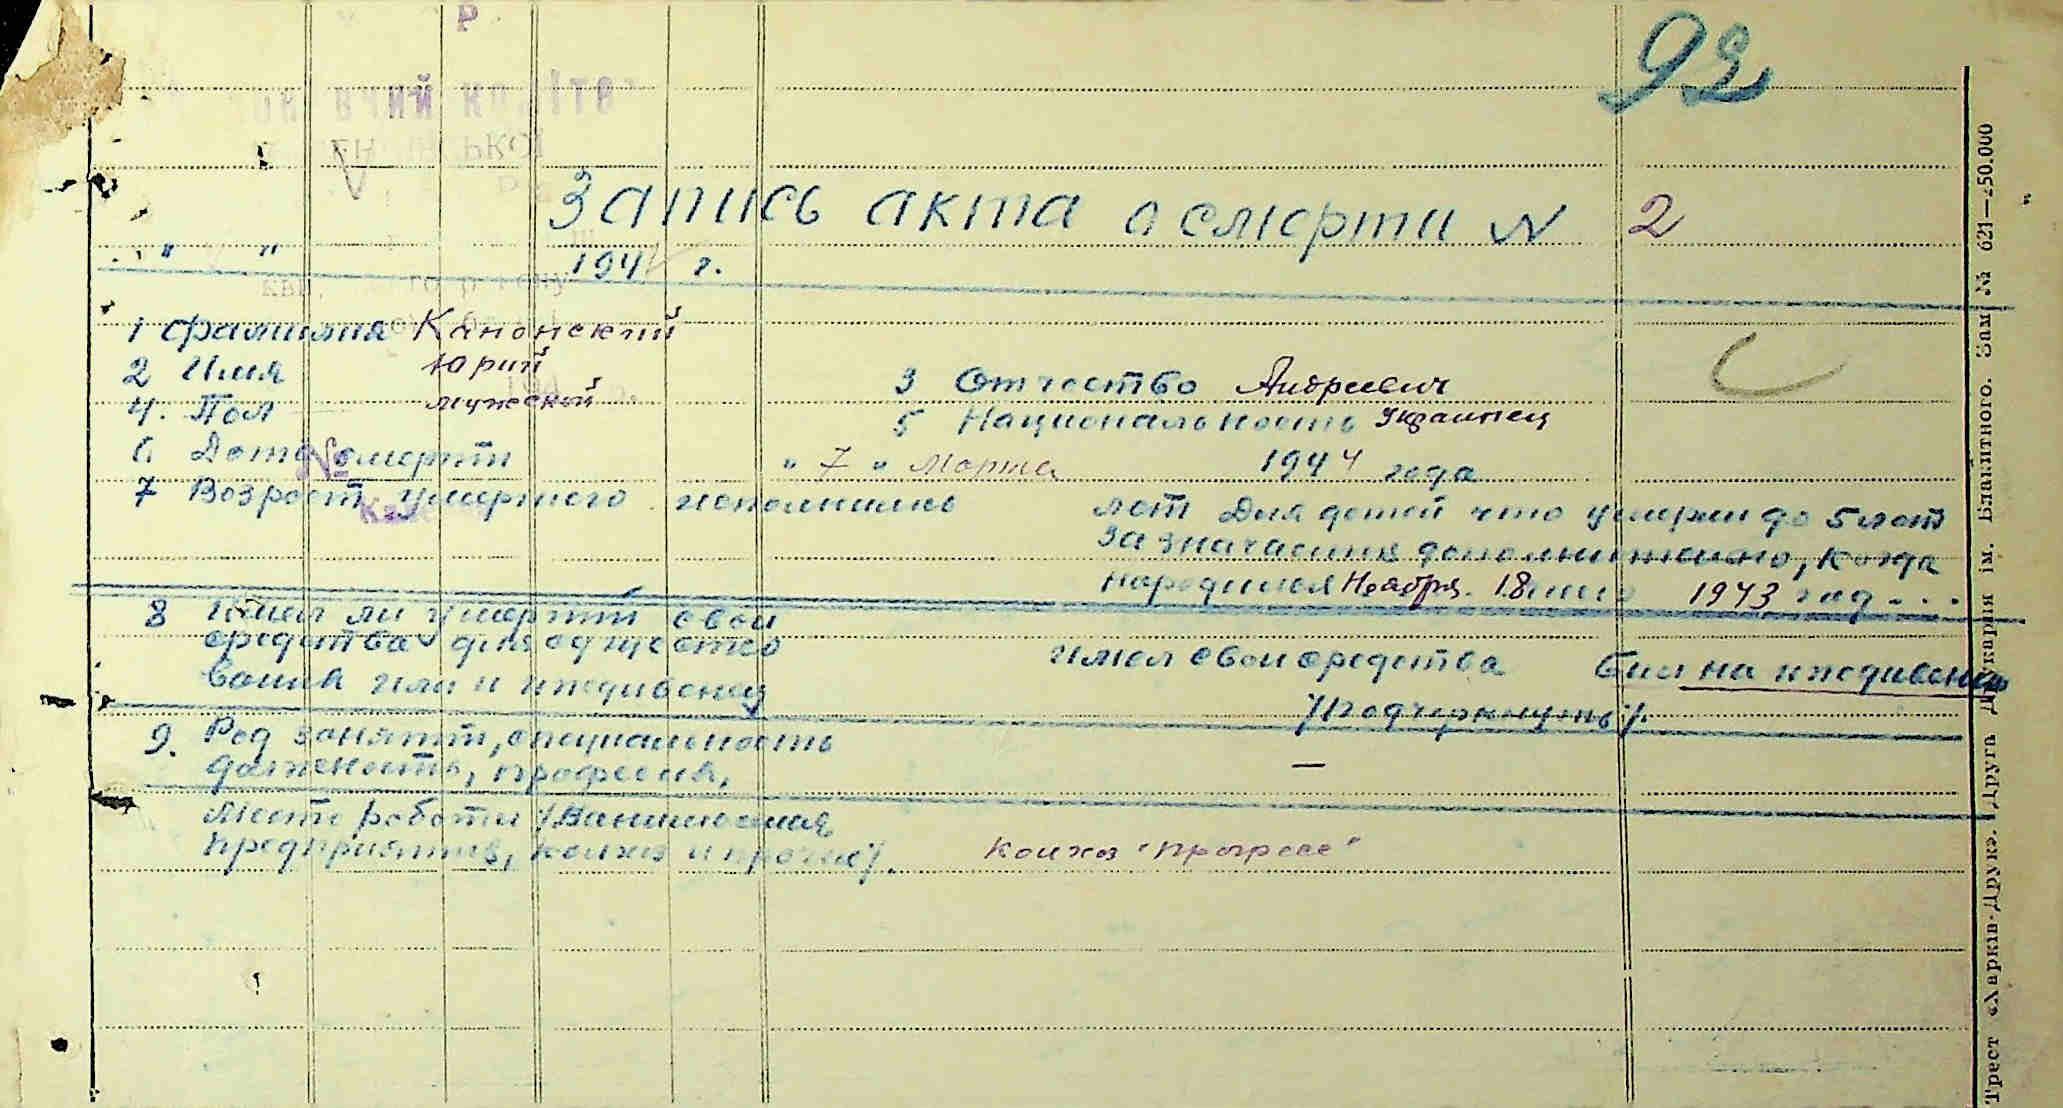 92
Запись акта о смерти N 2
" " 194 г.
1 Фамилия Канонский
2 Имя Юрий 3 Отчество Андреевич
4. Пол мужской 5 Национальность Украинец
6. Дата смерти " 7 " Марта 1944 года
7 Возраст умершого исполнилось лет Для детей что умерли до 5 лет
зазначается дополнительно, когда
народился Ноября 18 1943 год...
8 Имел ли умерший свои
средства для существо
вания или иждивенец имел свои средства был на иждивении
/Подчеркнуть/.
9. Род занятий, специальность
должность, професия, —
Место работы /
предприятие, колхоз и прочее/. Колхоз "Прогресс"
Трест «Харків-Друк». Друга Друкарня ім. Блакитного. Зам. № 621—250.000